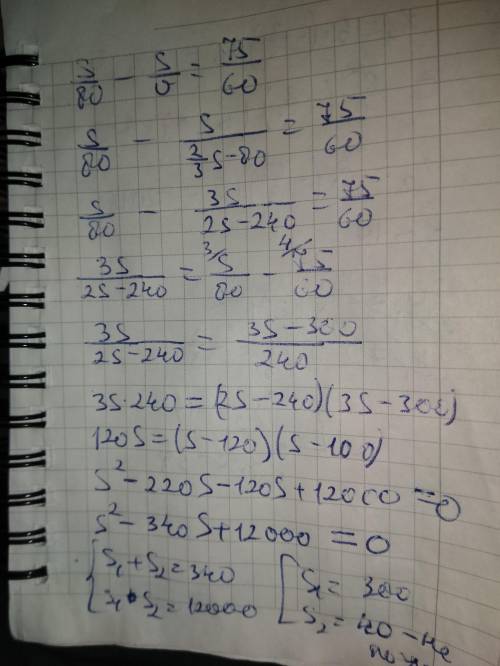 S/80 − S/υ = 75/60
S/80 − S/(2/3 S−80) = 75/60
S/80 − 3S/(2S−240) = 75/60
3S/(2S−240) = 3/ S/80 − 4/ 75/60
3S/(2S−240) = (3S−300)/240
3S·240=(2S−240)(3S−300)
120S=(S−120)(S−100)
S²−220S−120S+12000=0
S²−340S+12000=0
{ S₁+S₂=340 [ S₁=300
S₁·S₂=12000 S₂=40−не